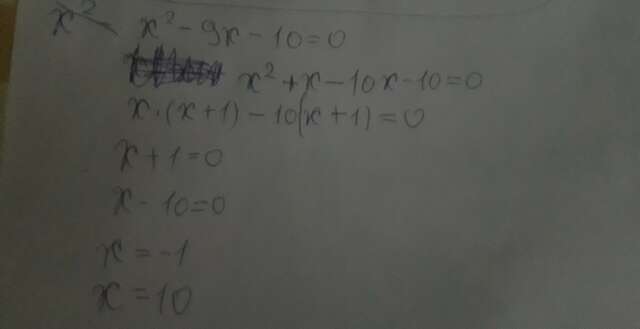 x² x² - 9x - 10 = 0
x² + x - 10x - 10 = 0
x · (x + 1) - 10(x + 1) = 0
x + 1 = 0
x - 10 = 0
x = -1
x = 10